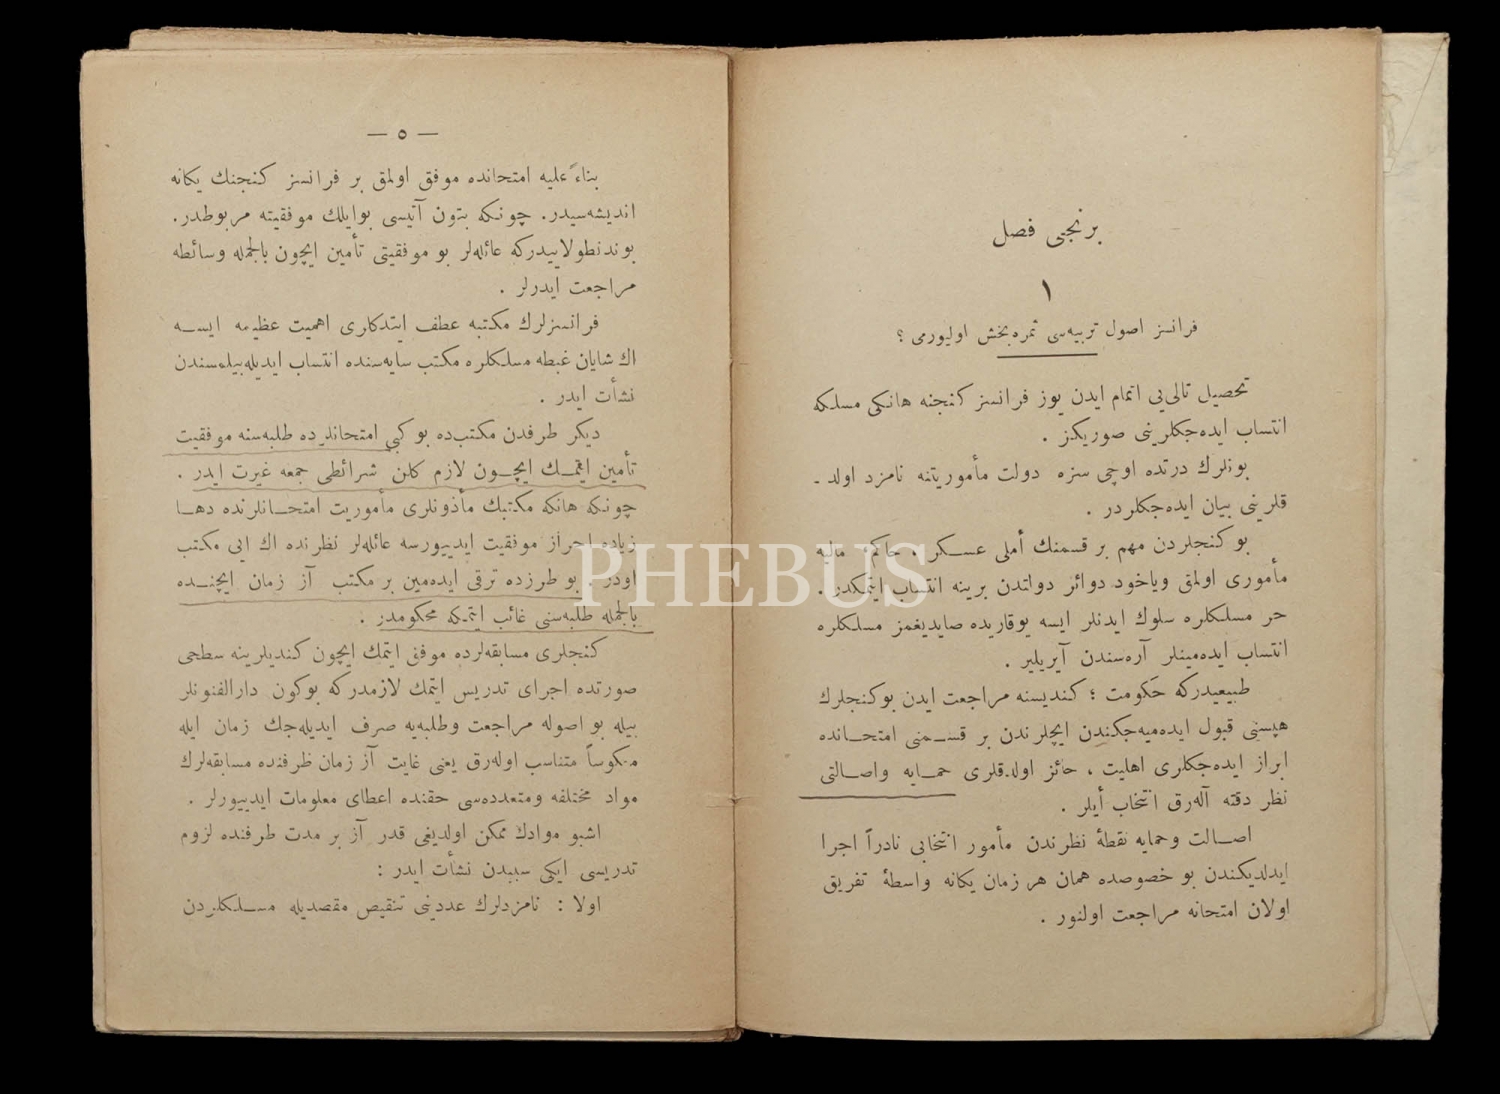 برنجی فصل
١
فرانسز اصول تربیه‌سی ثمره‌بخش اولیورمی ؟
تحصیل تالی‌یی اتمام ایدن یوز فرانسز کنجنه هانکی مسلکه
انتساب ایده‌جکلرینی صوریکز .
بونلرك درتده اوچی سزه دولت مأموریتنه نامزد اولد ـ
قلرینی بیان ایده‌جکلردر .
بو کنجلردن مهم بر قسمنك أملی عسکر ، حاکم ، مالیه
مأموری اولمق ویاخود دوائر دولتدن برینه انتساب ایتمکدر .
حر مسلکلره سلوك ایدنلر ایسه یوقاریده صایدیغمز مسلکلره
انتساب ایده‌مینلر آره‌سندن آیریلیر .
طبیعیدرکه حکومت ؛ کندیسنه مراجعت ایدن بوکنجلرك
هپسنی قبول ایده‌میه‌جکندن ایچلرندن بر قســمنی امتحــانده
ابراز ایده‌جکلری اهلیت ، حائز اولدقلری حمــایه واصــالتی
نظر دقته آله‌رق انتخاب أیلر .
اصــالت وحمایه نقطۀ نظرندن مأمور انتخابی نادراً اجرا
ایدلدیکندن بو خصوصده همان هر زمان یکانه واسطۀ تفریق
اولان امتحانه مراجعت اولنور .
— ٥ —
بناءً علیه امتحانده موفق اولمق بر فرانسز کنجنك یکانه
اندیشه‌سیدر. چونکه بتون آتیسی بوایلك موفقیته مربوطدر.
بوندنطولاییدرکه عائله‌لر بو موفقیتی تأمین ایچون بالجمله وسائطه
مراجعت ایدرلر .
فرانسزلرك مکتبه عطف ایتدکاری اهمیت عظیمه ایســه
اك شایان غبطه مسلکلره مکتب سایه‌سنده انتساب ایدیله‌بیلمسندن
نشأت ایدر .
دیکر طرفدن مکتب‌ده بو کبی امتحانلرده طلبه‌سنه موفقیت
تأمین ایتمــك ایچــون لازم کلن شرائطی جمعه غیرت ایدر .
چونکه هانکه مکتبك مأذونلری مأموریت امتحــانلرنده دهــا
زیاده احراز موفقیت ایدییورسه عائله‌لر نظرنده اك ایی مکتب
اودر . بو طرزده ترقی ایده‌مین بر مکتب آز زمان ایچنــده
بالجمله طلبه‌سنی غائب ایتمکه محکومدر .
کنجلری مسابقه‌لرده موفق ایتمك ایچون کندیلرینه سطحی
صورتده اجرای تدریس ایتمك لازمدرکه بوکون دارالفنونلر
بیله بو اصوله مراجعت وطلبه‌یه صرف ایدیله‌جك زمان ایله
معکوساً متناسب اوله‌رق یعنی غایت آز زمان ظرفنده مسابقه‌لرك
مواد مختلفه ومتعدده‌سی حقنده اعطای معلومات ایدییورلر .
اشبو موادك ممکن اولدیغی قدر آز بر مدت ظرفنده لزوم
تدریسی ایکی سببدن نشأت ایدر :
اولا : نامزدلرك عددینی تنقیص مقصدیله مســلکلردن
PHEBUS